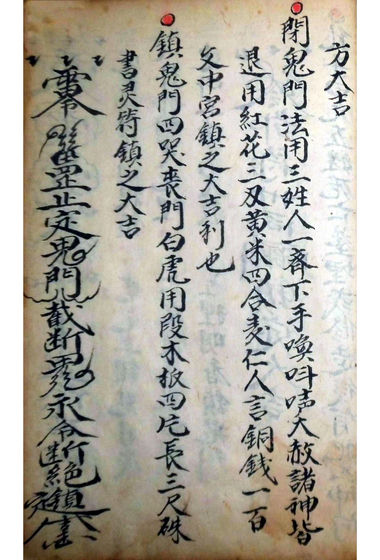 方大吉
閉鬼門法用三姓人一齊下手喚叫声大赦諸神皆
退用紅花三双黄米四合麦仁人言銅錢一百
文中宮鎮之大吉利也
鎮鬼門四哭喪門白虎用段木板四片長三尺硃
書灵符鎮之大吉
罡止定鬼門截断永令断絶鎮定